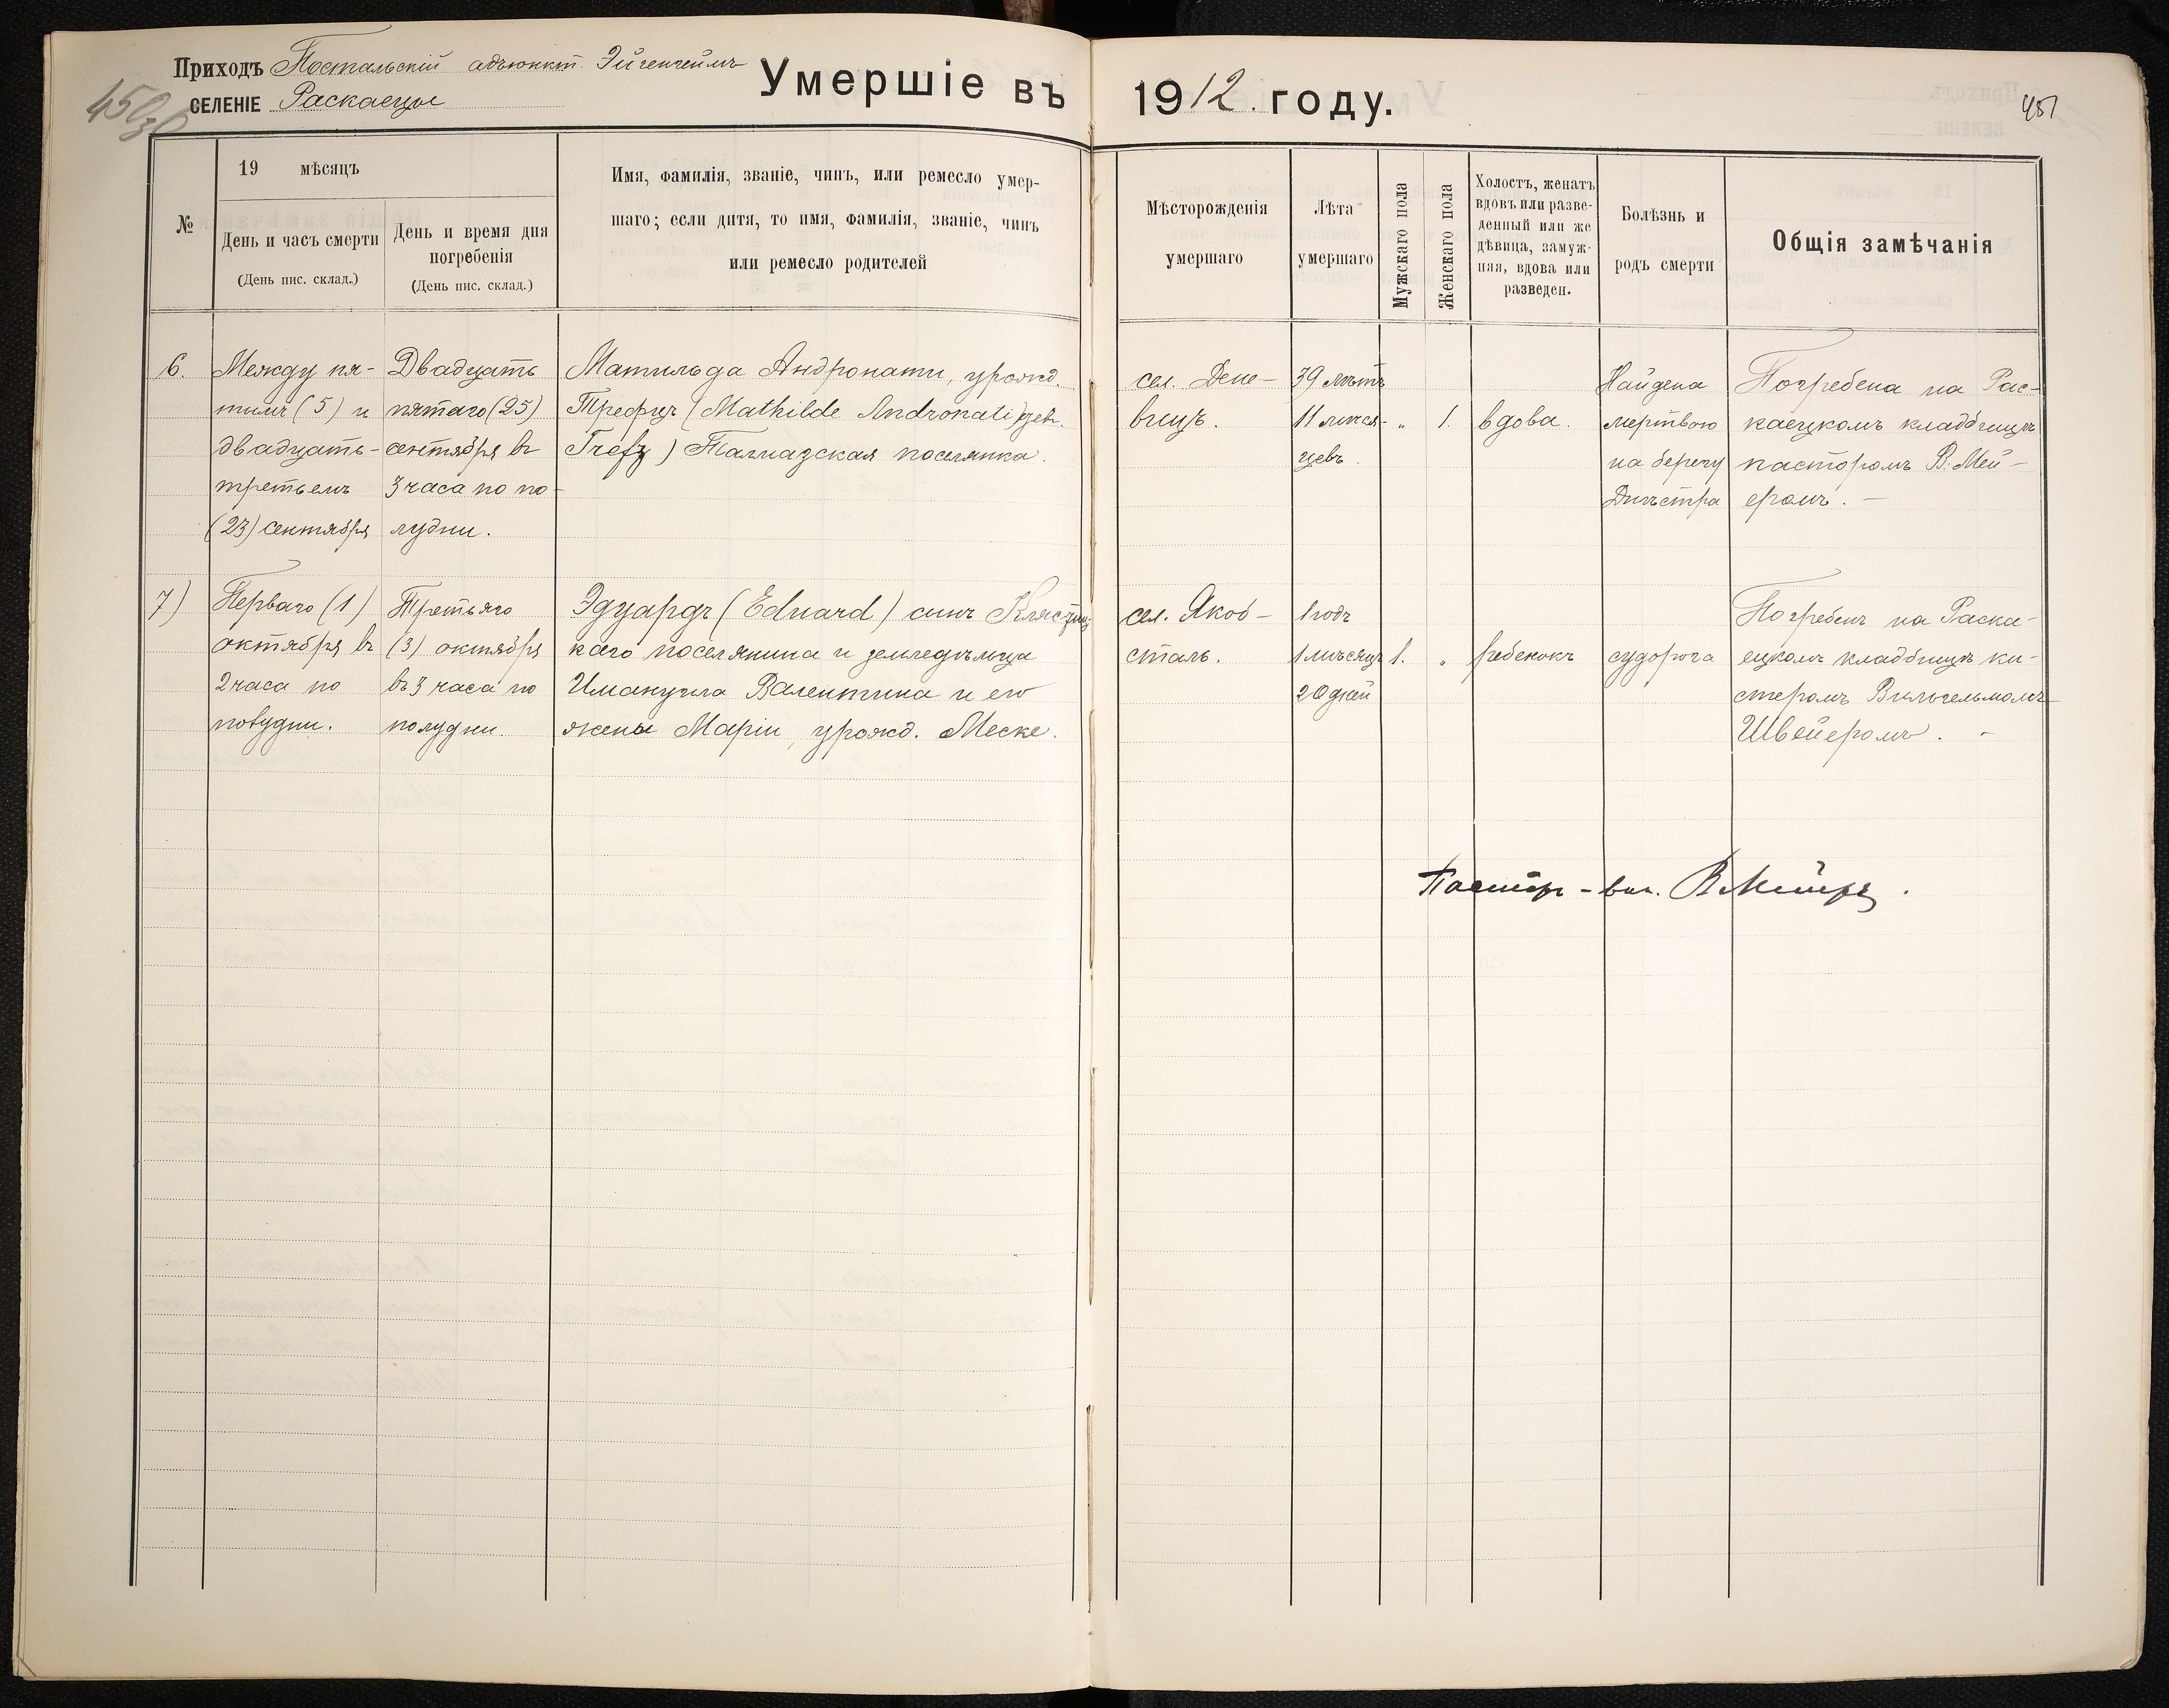 Приходъ Постальскій адъюнкт. Эйгенгеймъ
СЕЛЕНІЕ Раскаецы
Умершіе въ 1912. году.
451
№
19 мѣсяцъ
День и часъ смерти
(День пис. склад.)
День и время дня
погребенія
(День пис. склад.)
Имя, фамилія, званіе, чинъ, или ремесло умер-
шаго; если дитя, то имя, фамилія, званіе, чинъ
или ремесло родителей
Мѣсторожденія
умершаго
Лѣта
умершаго
Мужскаго пола
Женскаго пола
Холостъ, женатъ
вдовъ или разве-
денный или же
дѣвица, замуж-
няя, вдова или
разведен.
Болѣзнь и
родъ смерти
Общія замѣчанія
6.
Между пя-
тымъ (5) и
двадцать-
третьемъ
(23) сентября
Двадцать
пятаго (25)
сентября въ
3 часа по по-
лудни.
Матильда Андронати, урожд.
Трефцъ (Mathilde Andronati geb.
Trefz) Талмазская поселянка.
сел. Дене-
вицъ.
39 лѣтъ
11 мѣся-
цевъ.
„
1.
вдова.
Найдена
мертвою
на берегу
Днѣстра
Погребена на Рас-
каецкомъ кладбищѣ
пасторомъ В. Мей-
еромъ. —
7)
Перваго (1)
октября въ
2 часа по
полудни.
Третьяго
(3) октября
въ 3 часа по
полудни.
Эдуардъ (Eduard) сынъ Клястиц-
каго поселянина и земледѣльца
Имануила Валентина и его
жены Маріи, урожд. Меске.
сел. Якоб-
сталь.
1 годъ
1 мѣсяцъ
20 дней
1.
„
ребенокъ
судорога
Погребенъ на Раска-
ецкомъ кладбищѣ ки-
стеромъ Вильгельмомъ
Швейеромъ. -
Пасторъ - В. Мейеръ.